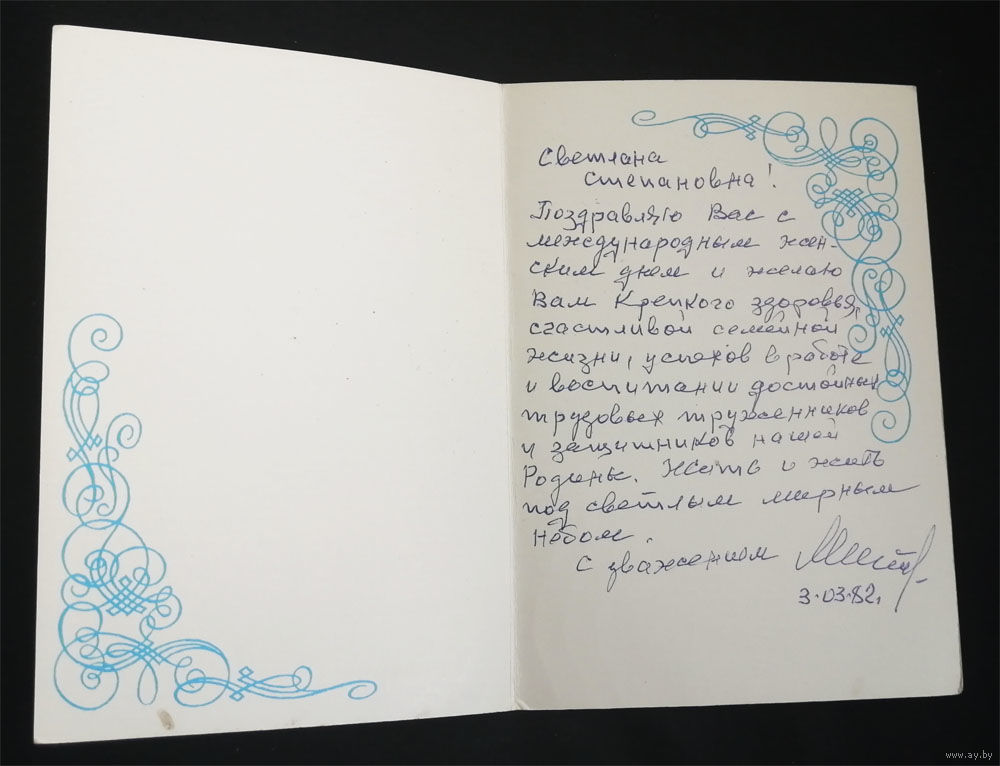 Светлана
Степановна!
Поздравляю Вас с
международным жен-
ским днем и желаю
Вам крепкого здоровья,
счастливой семейной
жизни, успехов в работе
и воспитании достойных
трудовых труженников
и защитников нашей
Родины. Жить и жить
под светлым мирным
небом.
С уважением
3.03.82г.
www.ay.by